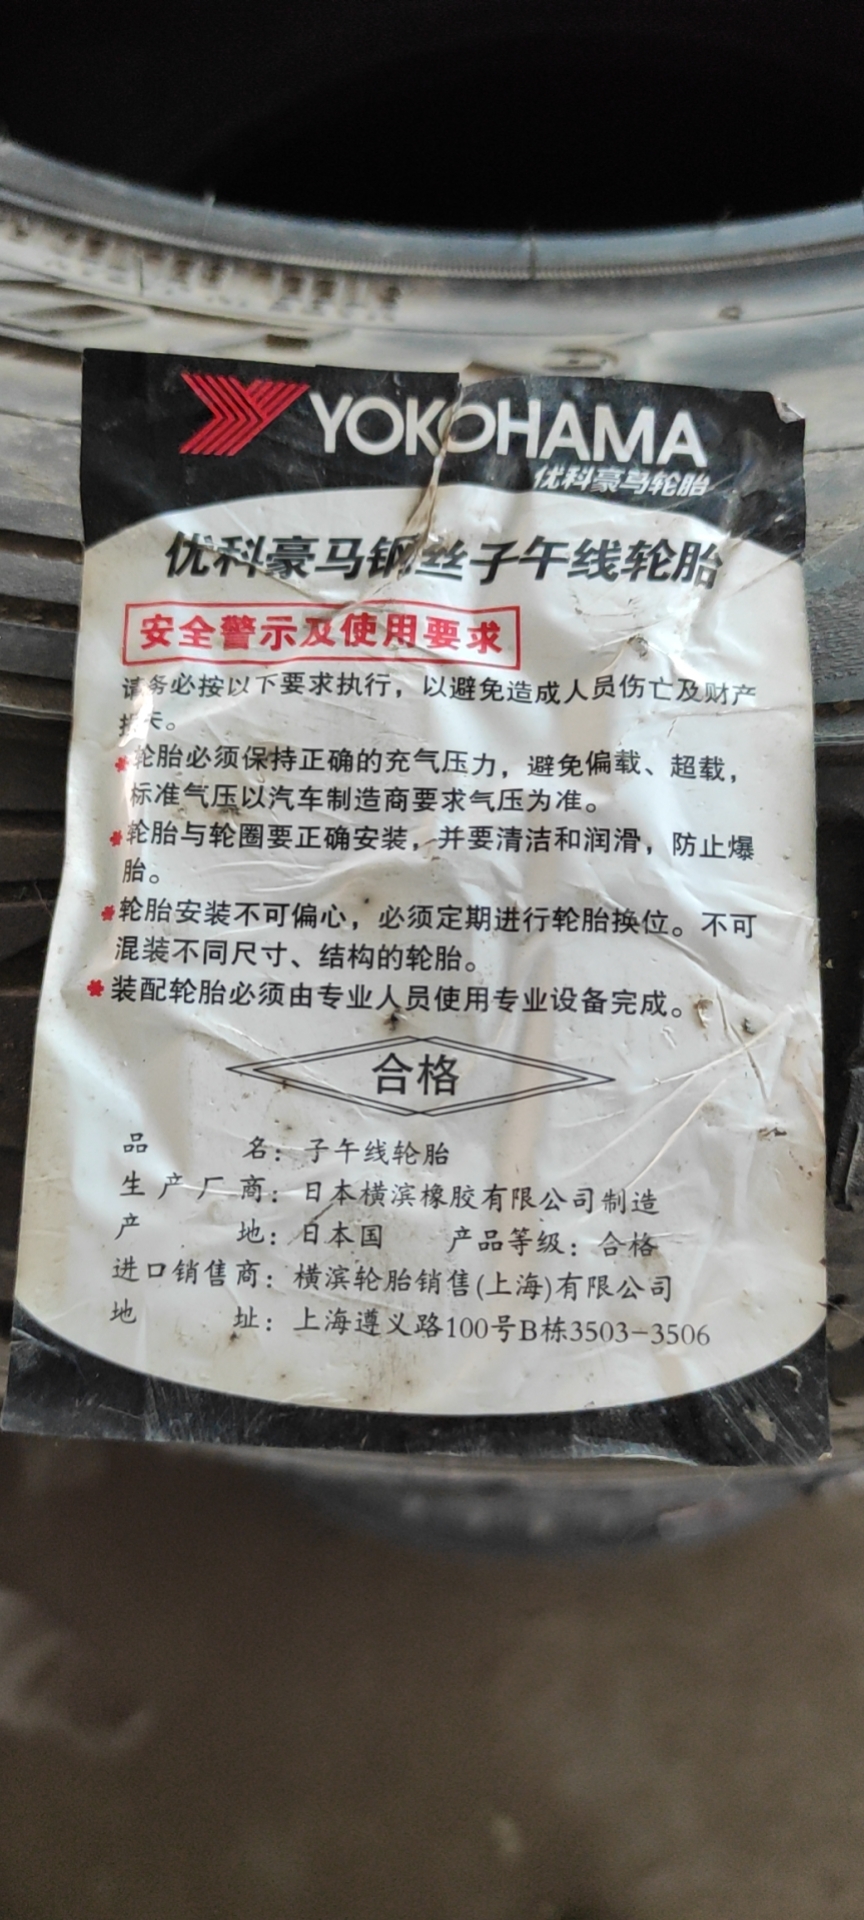 YOKOHAMA
优科豪马轮胎
优科豪马钢丝子午线轮胎
安全警示及使用要求
请务必按以下要求执行，以避免造成人员伤亡及财产
损失。
轮胎必须保持正确的充气压力，避免偏载、超载，
标准气压以汽车制造商要求气压为准。
轮胎与轮圈要正确安装，并要清洁和润滑，防止爆
胎。
轮胎安装不可偏心，必须定期进行轮胎换位。不可
混装不同尺寸、结构的轮胎。
装配轮胎必须由专业人员使用专业设备完成。
合格
品名：子午线轮胎
生产厂商：日本横滨橡胶有限公司制造
产地：日本国 产品等级：合格
进口销售商：横滨轮胎销售(上海)有限公司
地址：上海遵义路100号B栋3503-3506